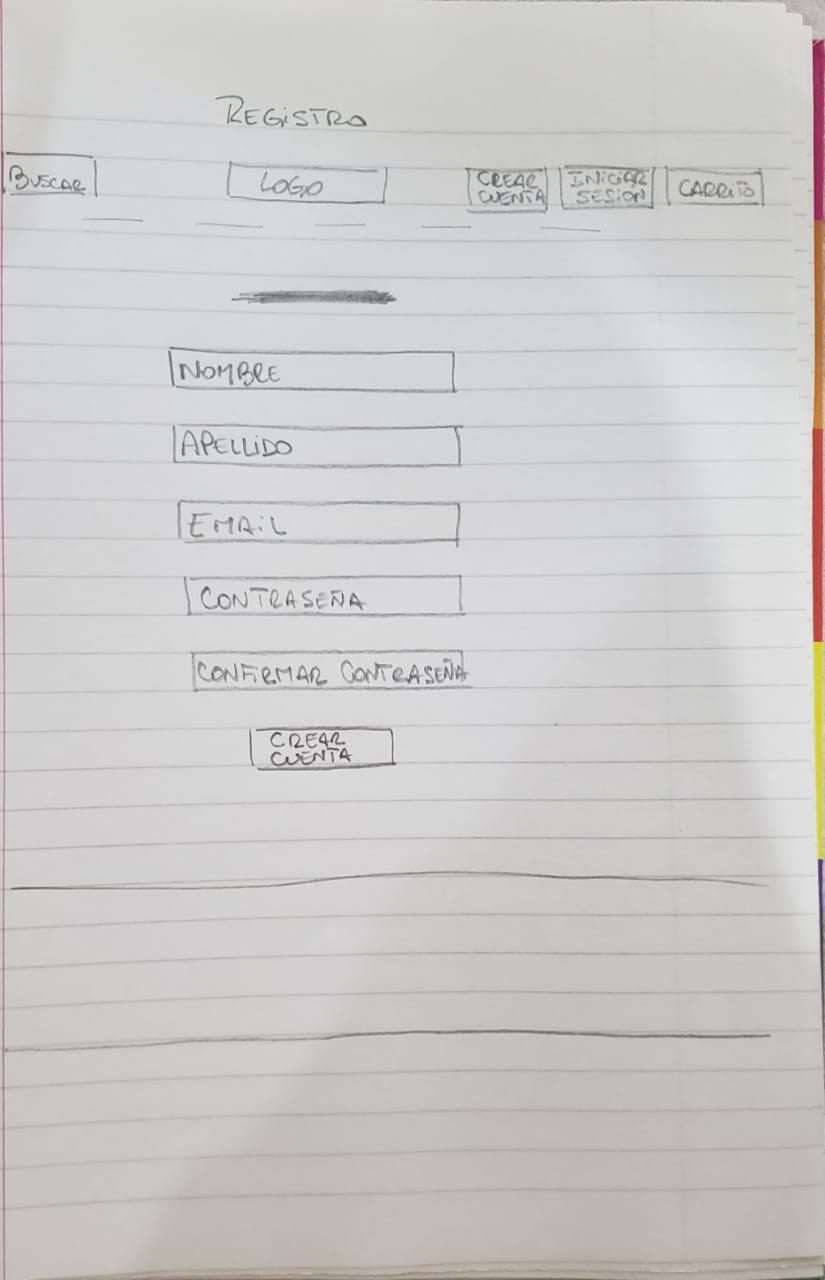 REGISTRO
BUSCAR
LOGO
CREAR
CUENTA
INICIAR
SESION
CARRITO
NOMBRE
APELLIDO
EMAIL
CONTRASEÑA
CONFIRMAR CONTRASEÑA
CREAR
CUENTA